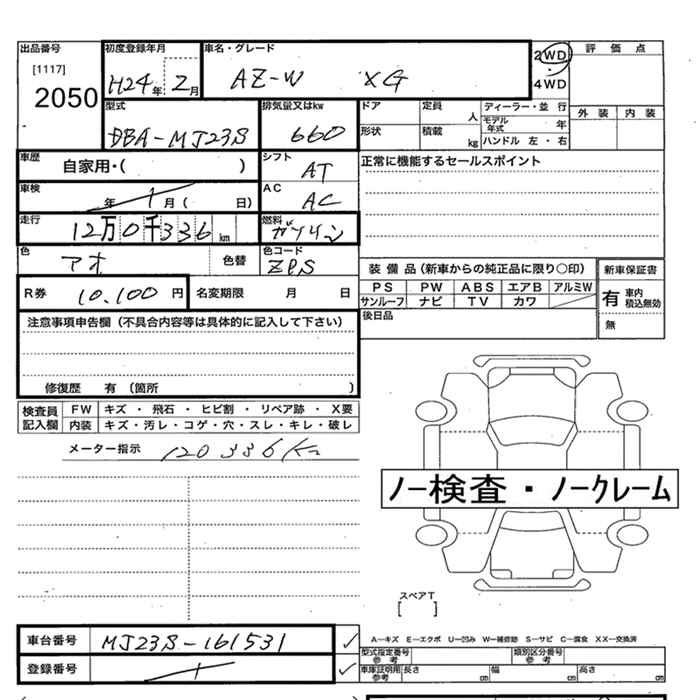 出品番号 初度登録年月 車名・グレード 評価点
[1117] 2WD
2050 H24年 2月 AZ-W XG 4WD
型式 排気量又はkw ドア 定員 人 ディーラー・並行 外装 内装
DBA-MJ23S 660 形状 積載 kg モデル年式 年
ハンドル 左・右
車歴 自家用・( ) シフト AT 正常に機能するセールスポイント
車検 年 月( 日) AC AC
走行 12万0千336km 燃料 ガソリン
色 アオ 色替 色コード
装備品(新車からの純正品に限り○印) 新車保証書
R券 10,100円 名変期限 月 日 PS PW ABS エアB アルミW 有 車内積込無効
サンルーフ ナビ TV カワ
注意事項申告欄(不具合内容等は具体的に記入して下さい) 後日品 無
修復歴 有 (箇所 )
検査員記入欄 FW キズ・飛石・ヒビ割・リペア跡・X要
内装 キズ・汚レ・コゲ・穴・スレ・キレ・破レ
メーター指示 120336Km
ノー検査・ノークレーム
スペアT
[ ]
車台番号 MJ23S-161531 A-キズ E-エクボ U-凹み W-補修跡 S-サビ C-腐食 XX-交換済
型式指定番号 参考 類別区分番号 参考
登録番号 車庫証明用 参考 長さ cm 幅 cm 高さ cm